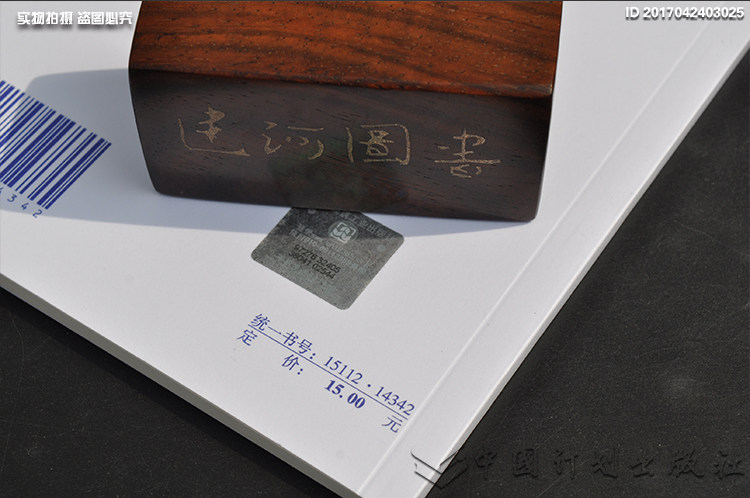 实物拍摄 盗图必究
ID 2017042403025
建河图书
6342
97278 32405
38041 02544
统一书号：15112·14342
定 价： 15.00 元
中国计划出版社